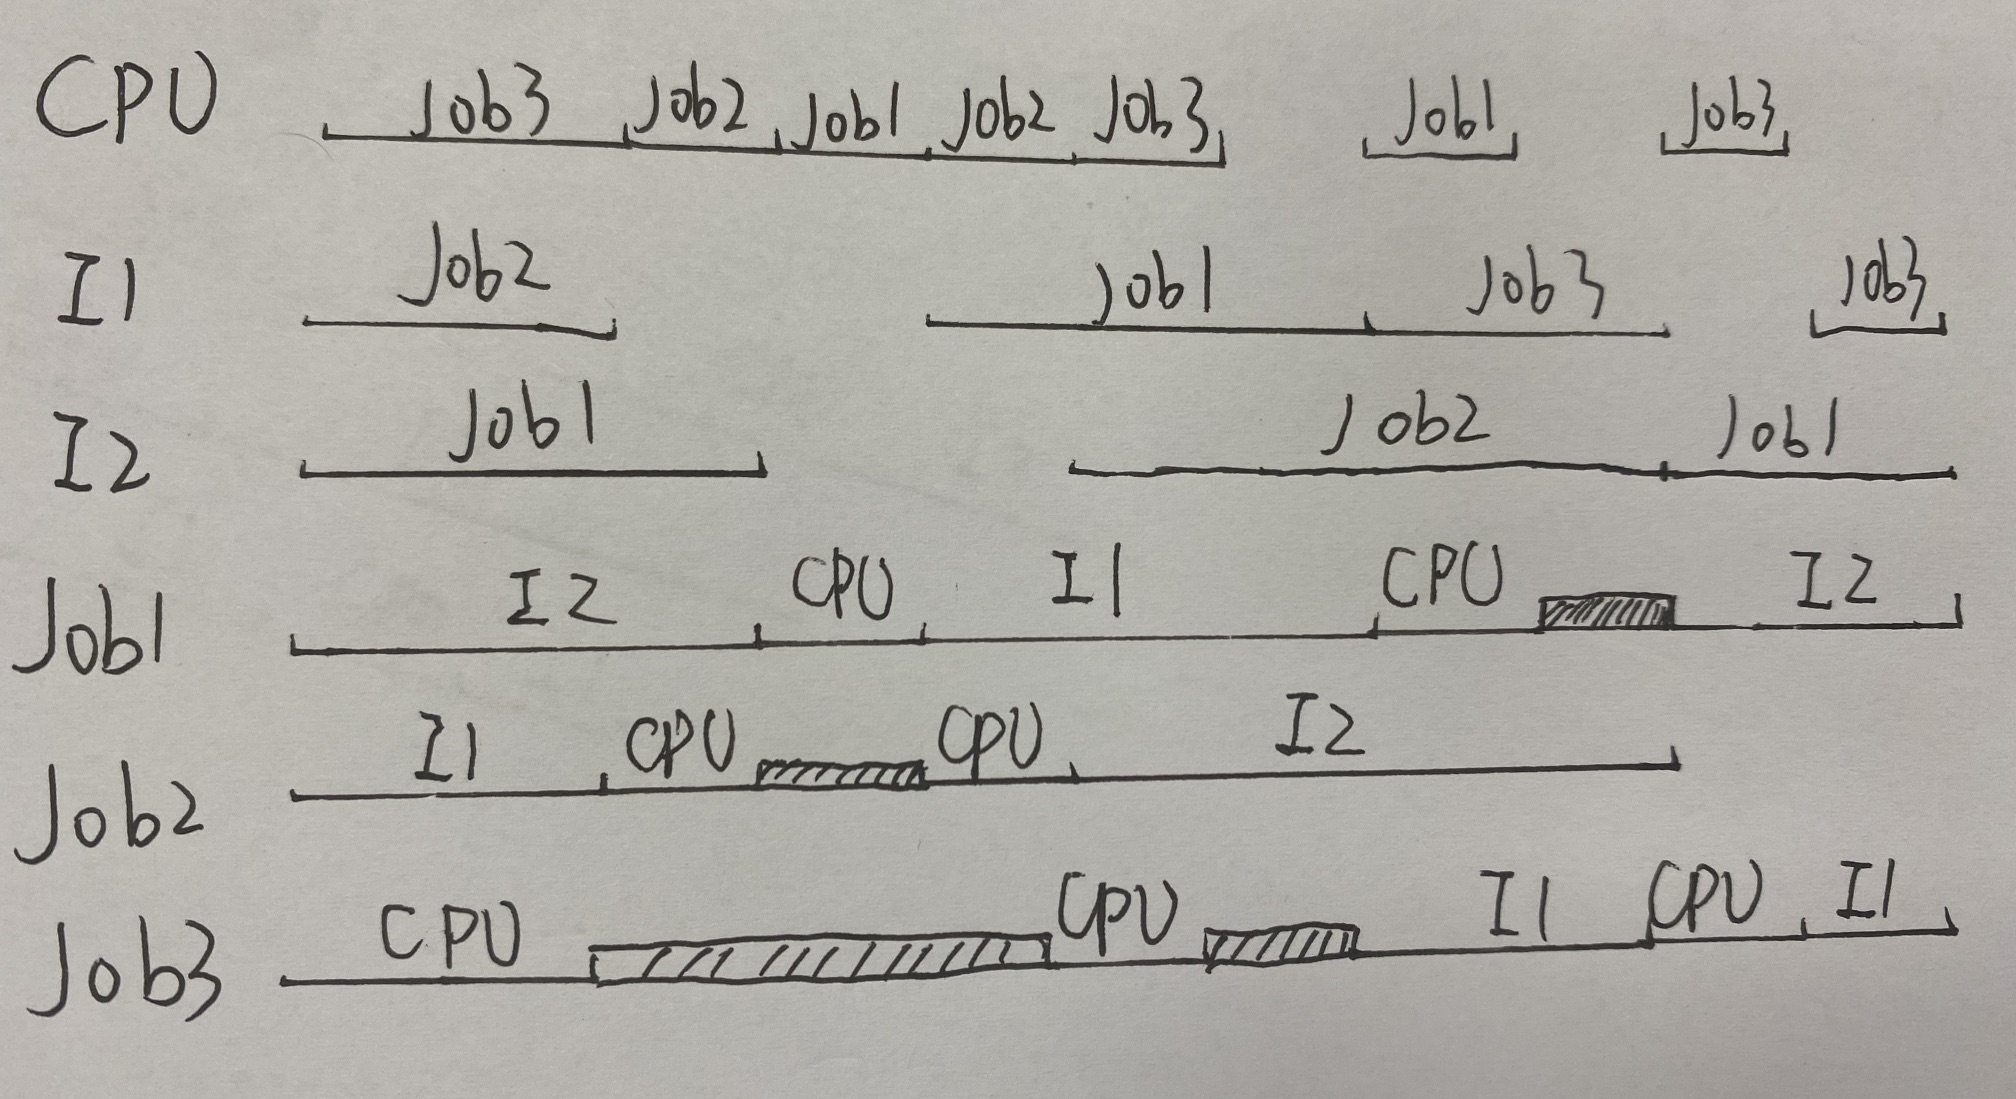 CPU Job3 Job2 Job1 Job2 Job3 Job1 Job3
I1 Job2 Job1 Job3 Job3
I2 Job1 Job2 Job1
Job1 I2 CPU I1 CPU I2
Job2 I1 CPU CPU I2
Job3 CPU CPU I1 CPU I1